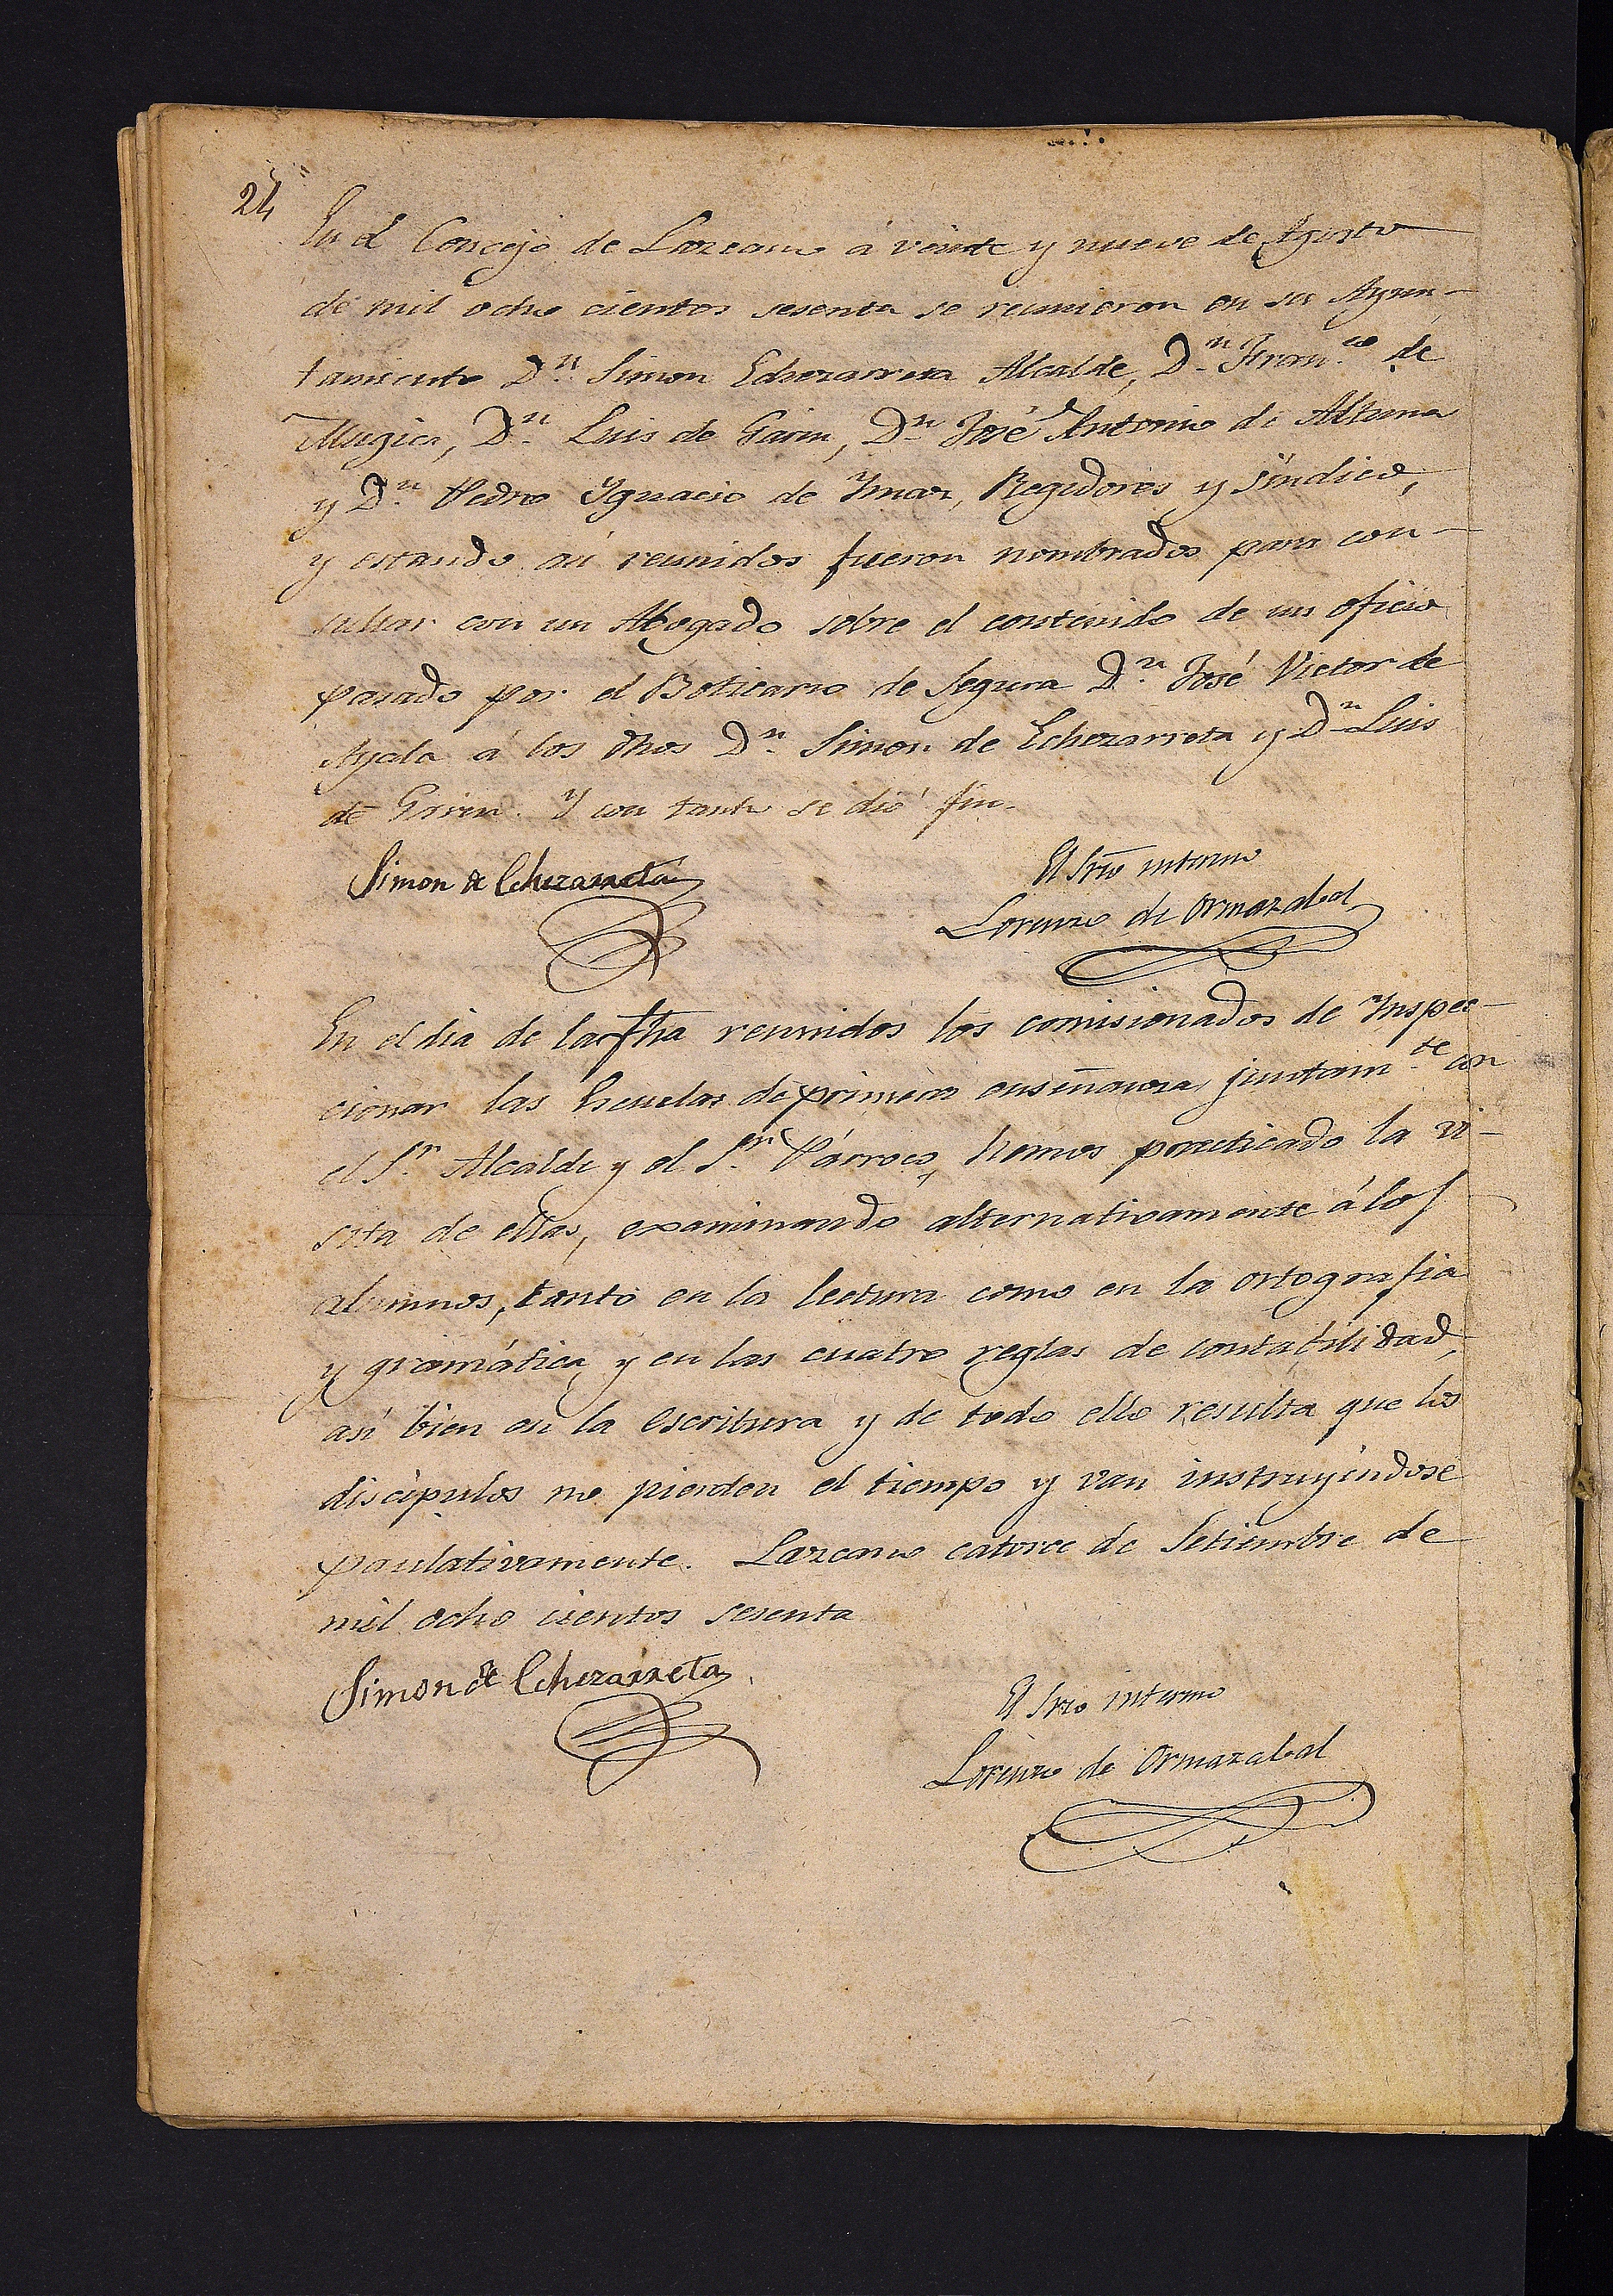 24
En el Concejo de Lazcano á veinte y nueve de Agosto
de mil ocho cientos sesenta se reunieron en su Ayun-
tamiento D.n Simon Echezarreta Alcalde, D.n Fran.co de
Mugica, D.n Luis de Garin, D.n José Antonio de Altuna
y D.n Pedro Ygnacio de Ymaz, Regidores y Síndico,
y estando asi reunidos fueron nombrados para con-
sultar con un Abogado sobre el contenido de un oficio
pasado por el Boticario de Segura D.n José Victor de
Ayala á los dhos D.n Simon de Echezarreta y D.n Luis
de Garin. Y con tanto se dió fin.
Simon de Echezarreta
El Srio interino
Lorenzo de Ormazabal
En el dia de la fha reunidos los comisionados de Ynspec-
cionar las Escuelas de primera enseñanza juntam.te con
el S.r Alcalde y el S.r Párroco, hemos practicado la vi-
sita de ellas, examinando alternativamente á los
alumnos, tanto en la lectura como en la ortografia
y gramática, y en las cuatro reglas de contabilidad,
asi bien en la escritura y de todo ello resulta que los
discípulos no pierden el tiempo y van instruyéndose
paulativamente. Lazcano catorce de Setiembre de
mil ocho cientos sesenta
Simon de Echezarreta
El Srio interino
Lorenzo de Ormazabal